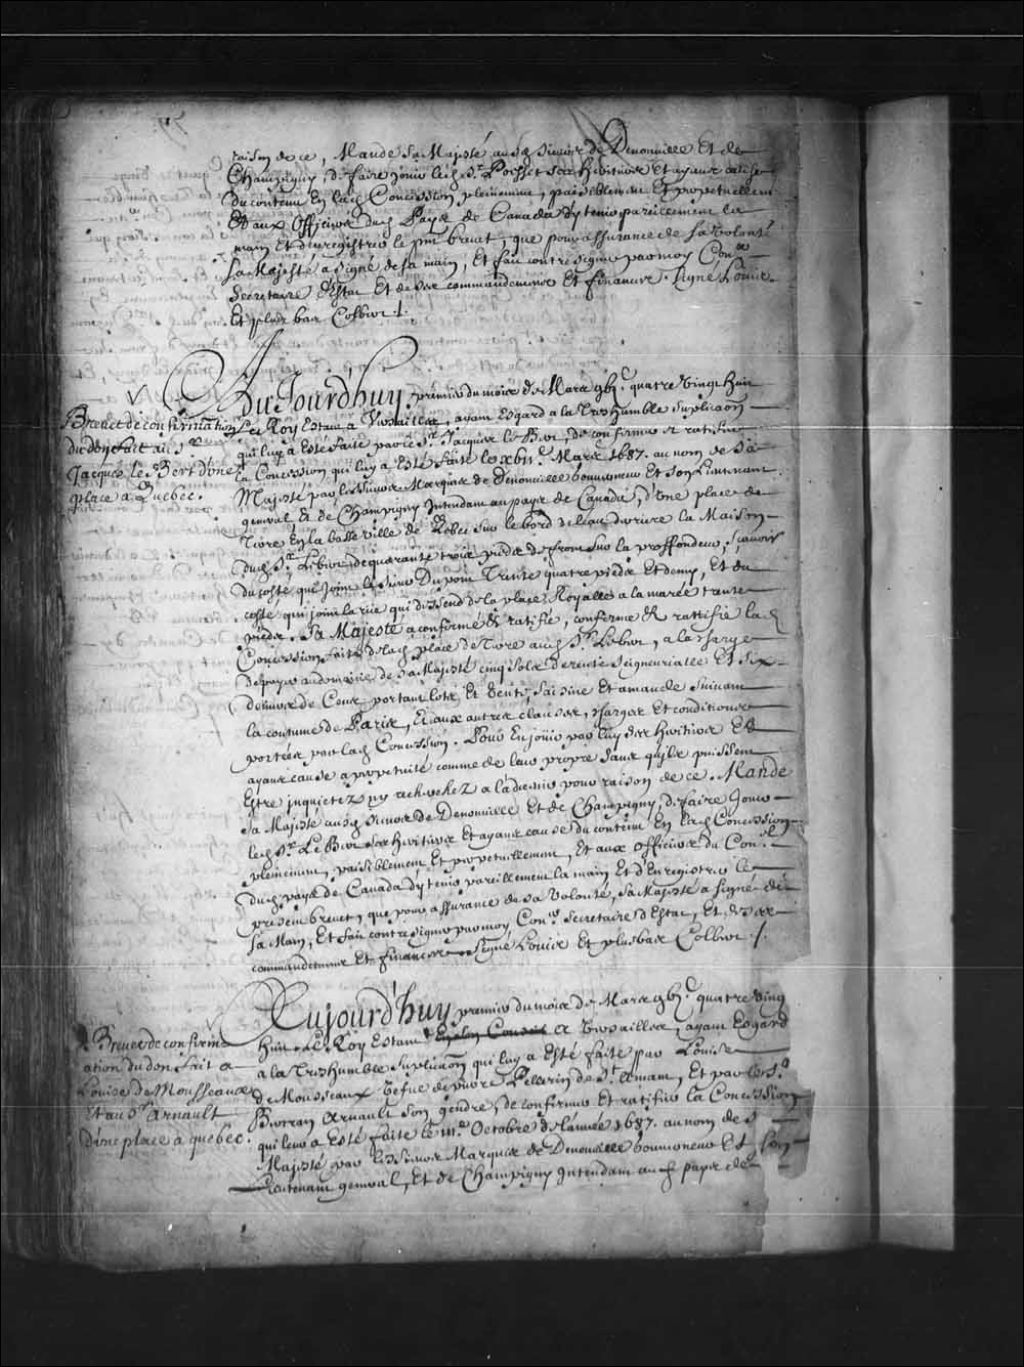 raison de ce, Mande Sa Majesté ausd Sieurs de Denonville Et de
Champigny, de faire jouir led Sr. Posset ses heritiers Et ayans cause
du contenu En lad Concession plainement, paisiblement Et perpetuellemt
Et aux Officiers dud Pays de Canada d'y tenir pareillement la
main Et d'enregistrer le pnt brevet, que pour assurance de sa volonté
Sa Majesté a signé de sa main, Et fait contresigner par moy Conser
Secretaire d'Estat Et de ses commandemens Et finances. Signé Louis
Et plus bas Colbert /.
Brevet de confirmation
du don fait au Sr.
Jacques Le Bert d'une
place a Quebec.
Au Jourdhuy premier du mois de Mars gbjc quatre vingt huit
Le Roy Estant a Versailles, ayant Esgard a la tres humble suplicaon
qui luy a Esté faite par le Sr. Jacques le Ber, de confirmer et ratifier
la Concession qui luy a Esté faite le Mars 1687. au nom de Sa
Majesté par les Sieurs Marquis de Denonville Gouverneur Et son Lieutenant
general Et de Champigny Intendant au pays de Canada, d'une place de
Terre En la basse ville de Kebec sur le bord de leau derriere la Maison
dud Sr. Leber de quarante trois pieds de front sur la proffondeur, sçavoir
du costé qui joint le Sieur Dupont Trente quatre pieds Et demy, Et du
costé qui joint la rue qui dessend de la place Royalle a la marée trente
pieds. Sa Majesté a confirmé Et ratifié, confirme Et rattifie lad
Concession faite de lad place de Terre aud Sr. Leber, a la charge
de payer au domaine de Sa Majesté cinq sols de rente Seigneurialle Et six
deniers de Cens portant lots Et ventes, saisine Et amande suivant
la coutume de Paris, Et aux autres clauses, charges Et conditions
portées par lad Concession. Pour En jouir par luy ses heritiers Et
ayans cause a perpetuité comme de leur propre sans qu'ils puissent
Estre inquietez ny recherchez a l'advenir pour raison de ce. Mande
Sa Majesté ausd Sieurs de Denonville Et de Champigny, de faire Jouir
led Sr. Le Ber ses heritiers Et ayans cause du contenu En lad Concession
pleinement, paisiblement Et perpetuellement, Et aux officiers du Conel
dud pays de Canada d'y tenir pareillement la main Et d'Enregistrer le
present brevet, que pour assurance de sa volonté, Sa Majesté a signé de
sa Main, Et fait contresigner par moy Coner Secretaire d'Estat, Et de ses
commandemens Et finances Signé Louis Et plus bas Colbert /.
Brevet de confirm
ation du don fait a
Louise de Mousseaux
Et au Sr. Arnault
d'une place a quebec.
Aujourd'huy premier du mois de Mars gbjc quatre vingt
huit Le Roy Estant a Versailles, ayant Esgard
a la Tres humble suplicaon qui luy a Esté faite par Louise
de Mousseaux vefue de Pierre Pellerin de St. Amant, Et par le Sr.
Bertran Arnault son gendre, de confirmer Et ratifier la Concession
qui leur a Esté faite le Octobre de l'année 1687. au nom de S
Majesté par les Sieurs Marquis de Denonville Gouverneur Et son
Lieutenant general, Et de Champigny Intendant aud pays de